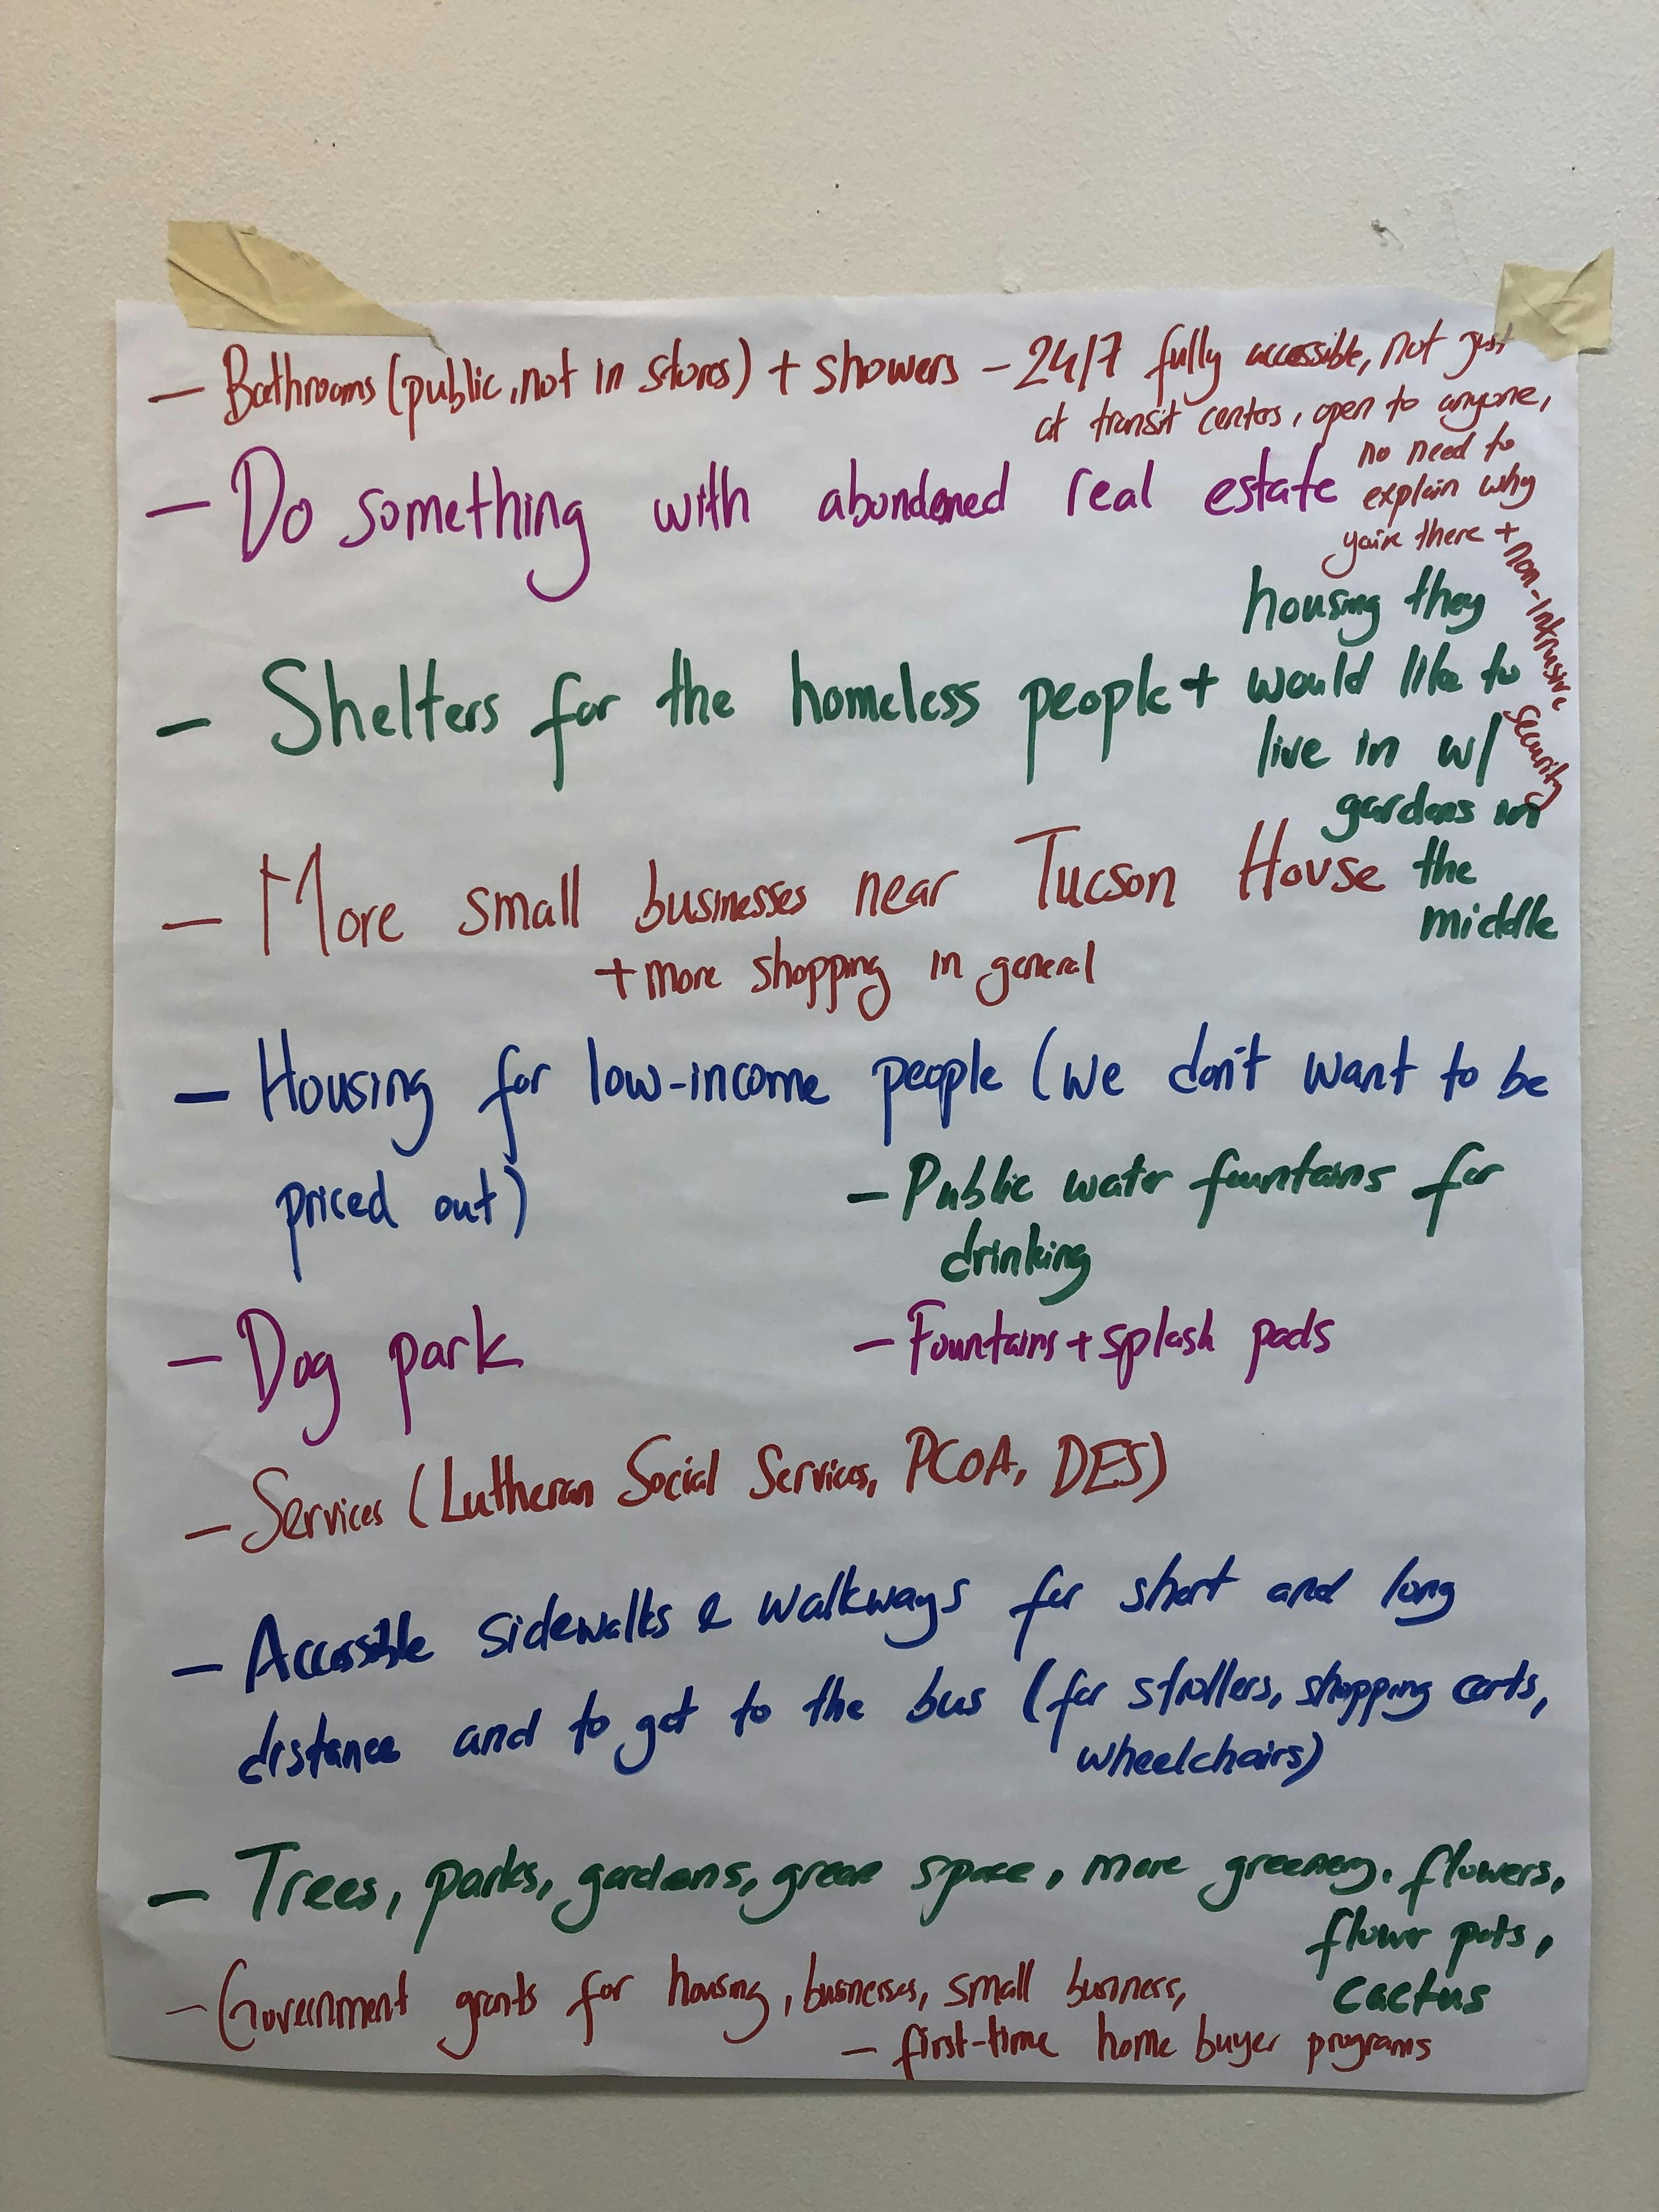 - Bathrooms (public, not in stores) + showers - 24/7 fully accessible, not just
at transit centers, open to anyone,
no need to
explain why
you're there +
non-intrusive
security
- Do something with abondoned real estate
- Shelters for the homeless people +
housing they
would like to
live in w/
gardens in
the
middle
- More small businesses near Tucson House
+ more shopping in general
- Housing for low-income people (we don't want to be
priced out)
- Public water fountains for
drinking
- Dog park
- Fountains + splash pads
- Services (Lutheran Social Services, PCOA, DES)
- Accessible sidewalks & walkways for short and long
distance and to get to the bus (for strollers, shopping carts,
wheelchairs)
- Trees, parks, gardens, green space, more greenery. flowers,
flower pots,
cactus
- Government grants for housing, businesses, small business,
- first-time home buyer programs